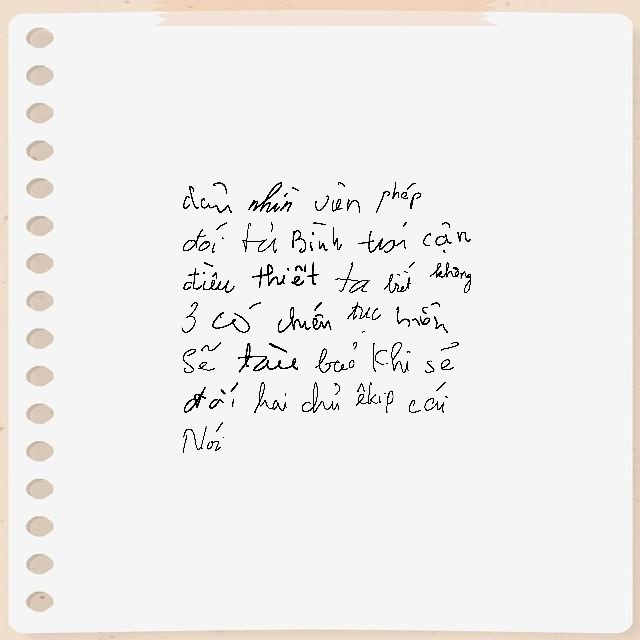 dần nhìn viên pháp
đói từ Bình tưới cận
điều thiết ta biết không
3 có chiến tục hiền
Sẽ tàu bảo Khi sẻ
đối hai chủ êkip cái
Nói